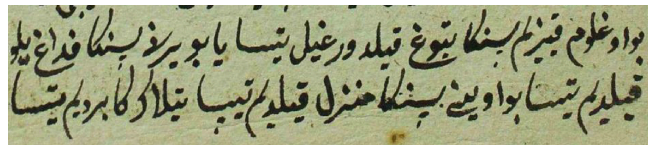 بو اوغلوم قیزیم سنکا بتوغ قیلدورغیل تیسا یا بو یرلا سنکا قداغ یلو
قیلدیم تیسا بو اوینی سنکا منزل قیلدیم تیسا یتلاکرکا بردیم تیسا